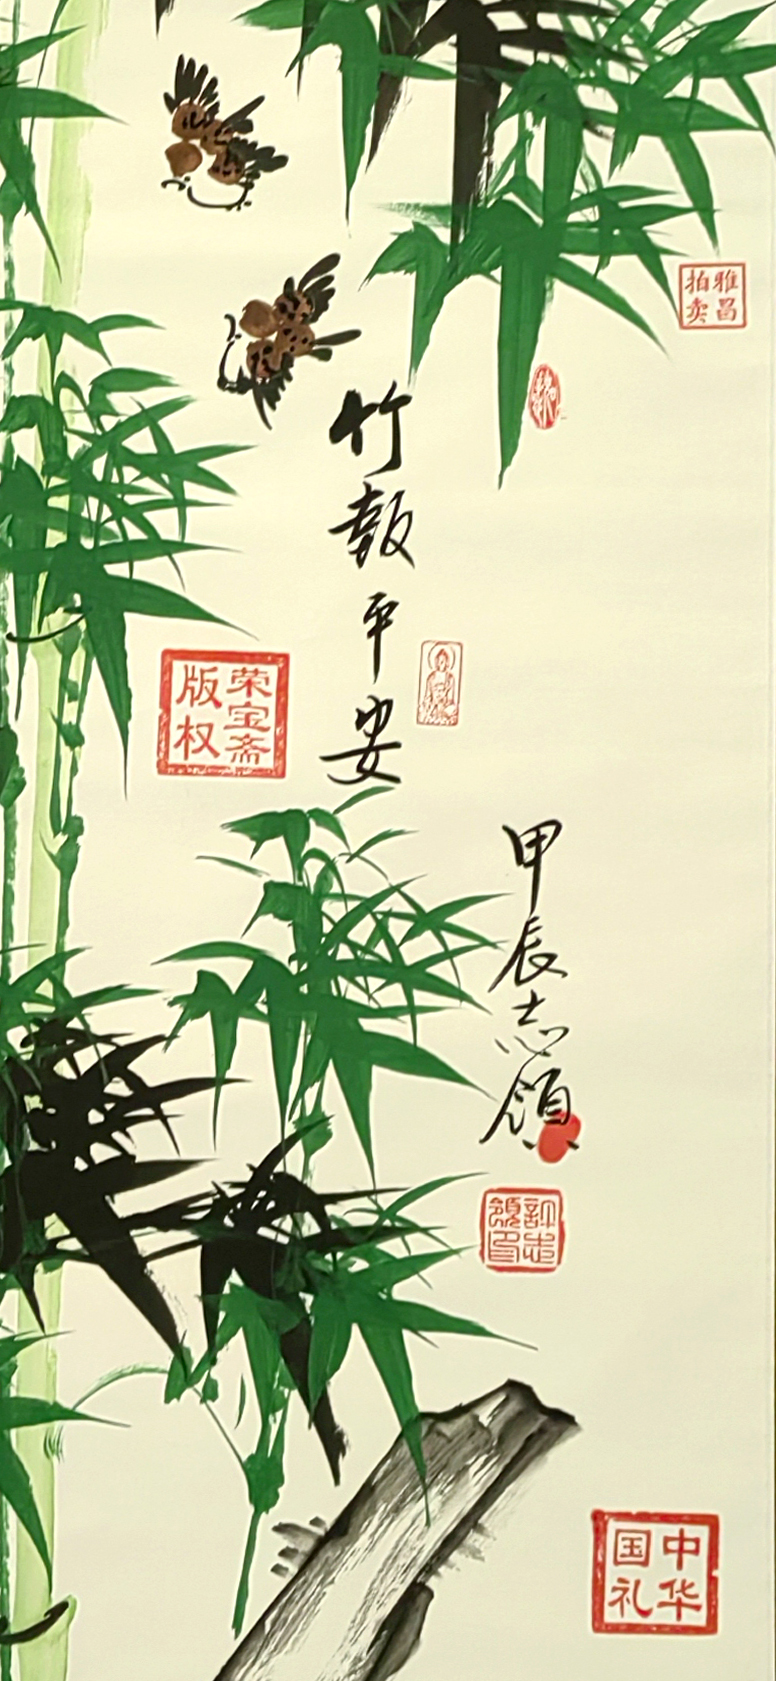 雅昌拍卖
竹報平安
荣宝斋版权
甲辰志領
許志領印
中华国礼